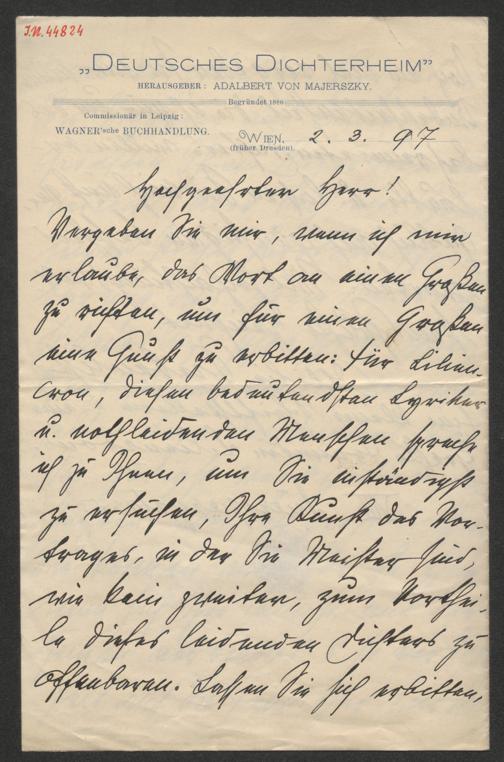 J.N. 44824
„DEUTSCHES DICHTERHEIM”
HERAUSGEBER: ADALBERT VON MAJERSZKY.
Begründet 1880
Commissionär in Leipzig:
WAGNER'sche BUCHHANDLUNG.
WIEN, 2. 3. 97
(früher Dresden).
Hochgeehrter Herr!
Vergeben Sie mir, wenn ich mir
erlaube, das Wort an einen Großen
zu richten, um für einen Großen
eine Gunst zu erbitten: für Lilien-
cron, diesen bedeutendsten Lyriker
u. nothleidenden Menschen spreche
ich zu Ihnen, um Sie inständigst
zu ersuchen, Ihre Kunst des Vor-
trages, in der Sie Meister sind,
wie kein zweiter, zum Vorthei-
le dieses leidenden Dichters zu
offenbaren. Lassen Sie sich erbitten,